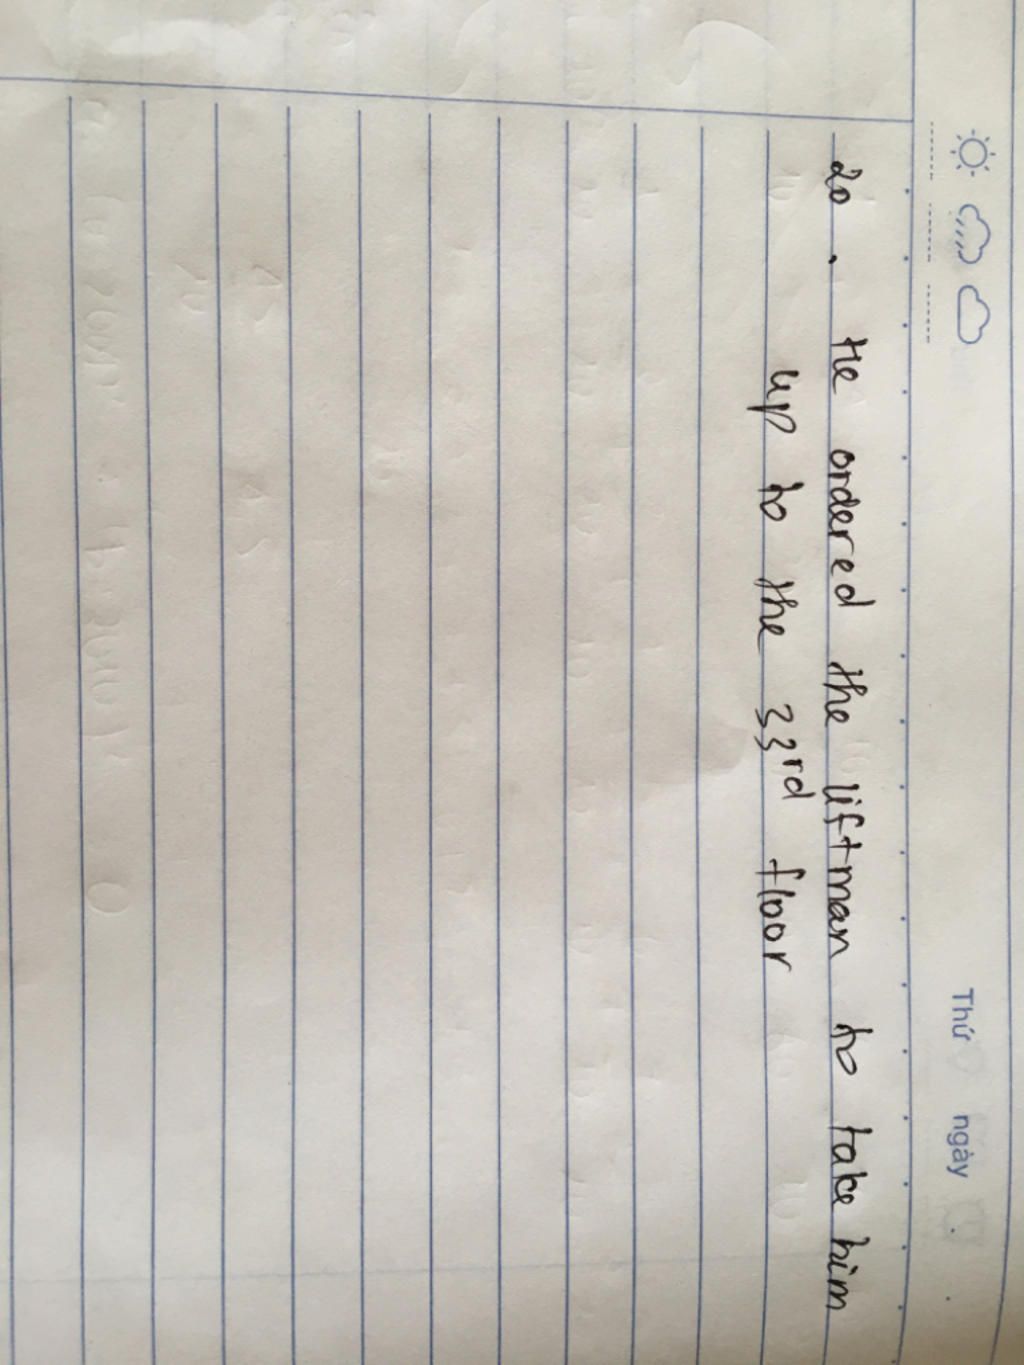 Thứ ngày
20. He ordered the liftman to take him
up to the 33rd floor